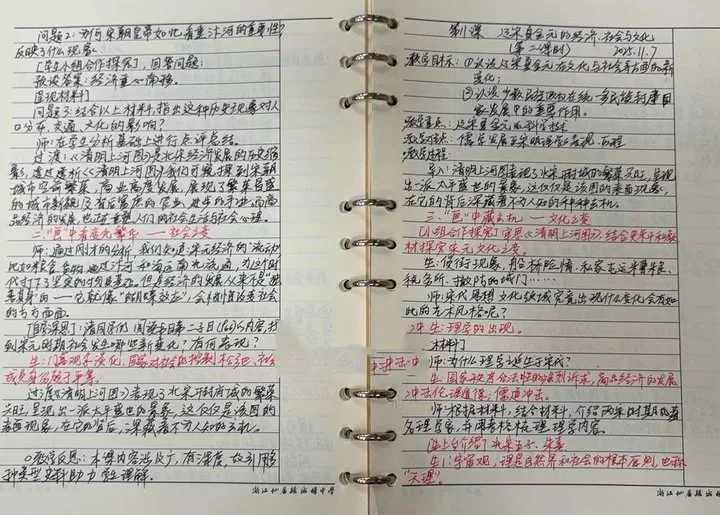 问题2：为何宋朝皇帝如此看重汴河的重要性？
反映了什么现象？
［学生小组合作探究］，回答问题：
预设答案：经济重心南移。
［呈现材料］
问题3：结合以上材料，指出这种历史现象对人
口分布、交通、文化的影响？
师：在学生分析基础上进行点评总结。
过渡：《清明上河图》是北宋经济发展的历史缩
影，透过虚析《清明上河图》我们可窥探到宋朝
城市空前繁荣，商业高度发展，展现了繁荣昌盛
的城市
经济的发展也正在重塑人们的社会生活与社会心理。
二、“画”中看变化繁华 — 社会之变
师：通过刚才的分析，我们知道宋元经济的“流动”
比如粮食
代打下了坚实的物质基础。但是经济的发展从来不是“独
善其身”的 — 它就像“蝴蝶效应”，会
的方方面面。
找到宋元时期社会发生哪些新变化？有何表现？
生：门第观念淡化，国家对社会的控制松弛，社会
成员身份趋于平等。
过渡：《清明上河图》表现了北宋开封府城的繁荣
兴旺，呈现出一派太平盛世的景象，这仅仅是该图的
表面现象，在它的背后，深藏着不为人知的玄机。
教学反思：本课内容涉及广，有深度，故引用多
种类型史料助力学生理解。
第11课 辽宋夏金元的经济、社会与文化
（第二课时） 2025.11.7
教学目标：①认识辽宋夏金元在文化与社会等方面的新
变化；
②认识少数民族政权在统一多民族封建国
家发展中的重要作用。
教学重点：辽宋夏金元的科学技术
教学难点：儒学发展至宋明理学的表现、历程
教学过程：
导入：《清明上河图》表现了北宋开封城的繁荣兴旺，呈现
出一派太平盛世的景象，这仅仅是该图的表面现象，
在它的背后深藏着不为人知的种种玄机。
三、“画”中藏玄机 — 文化之变
［小组合作探究］审思《清明上河图》，结合史料和教
材探究宋元文化之变。
生：侵街现象、船桥险情、私家
税务所、撤防的城门……
师：宋代思想文化领域究竟出现什么变化会有如
此的艺术风格呢？
生：理学的出现。
［材料］
师：为什么理学诞生于宋代？
生：国家
冲击伦理道德；儒道冲击。
师：展示材料，结合材料，介绍两宋时期的著
名理学家，并用表格梳理理学内容。
［上台介绍］北宋五子、朱熹
生1：宇宙观，理是自然界和社会的根本原则，也称
“天理”。